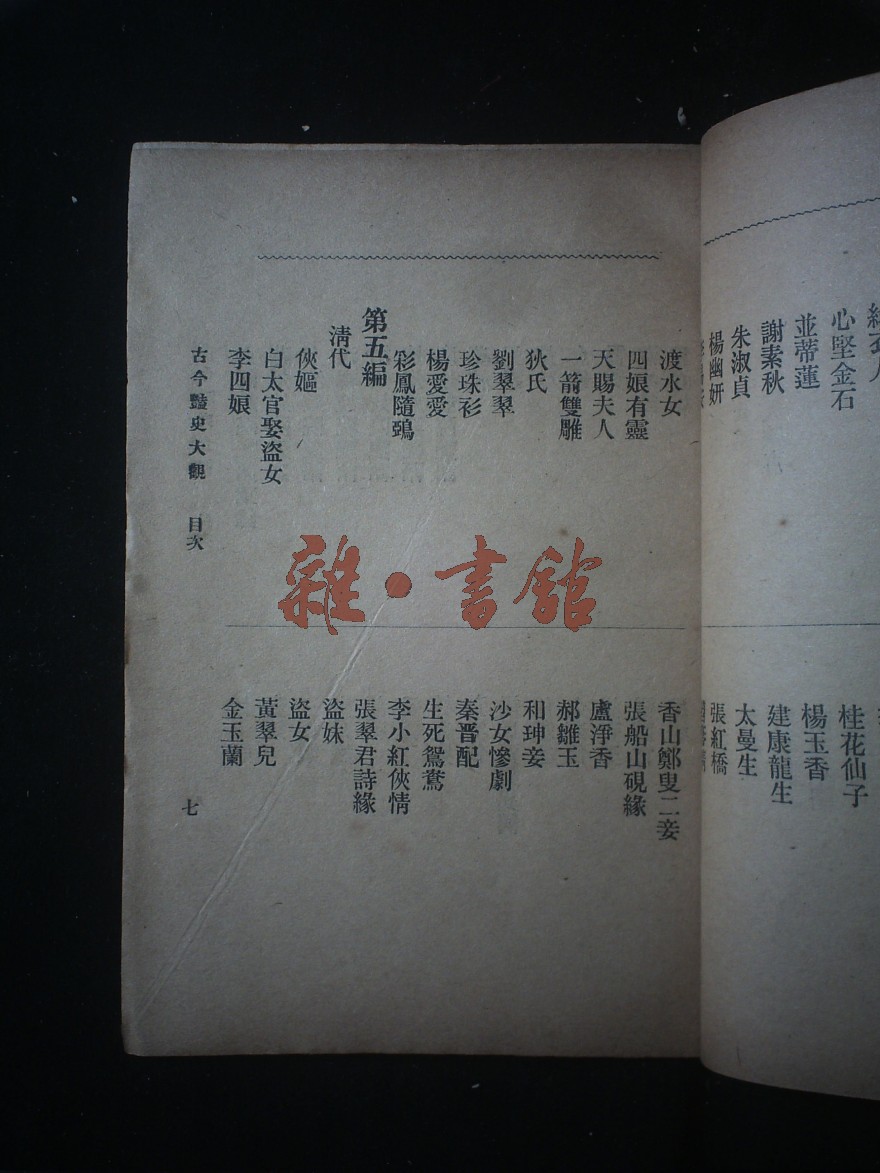 心堅金石
並蒂蓮
謝素秋
朱淑貞
楊幽妍
桂花仙子
楊玉香
建康龍生
太曼生
張紅橋
渡水女
四娘有靈
天賜夫人
一箭雙雕
狄氏
劉翠翠
珍珠衫
楊愛愛
彩鳳隨鴉
第五編
清代
俠嫗
白太官娶盜女
李四娘
香山鄭叟二妾
張船山硯緣
盧淨香
郝雛玉
和珅妾
沙女慘劇
秦晋配
生死鴛鴦
李小紅俠情
張翠君詩緣
盜妹
盜女
黃翠兒
金玉蘭
古今豔史大觀 目次
七
雜·書館